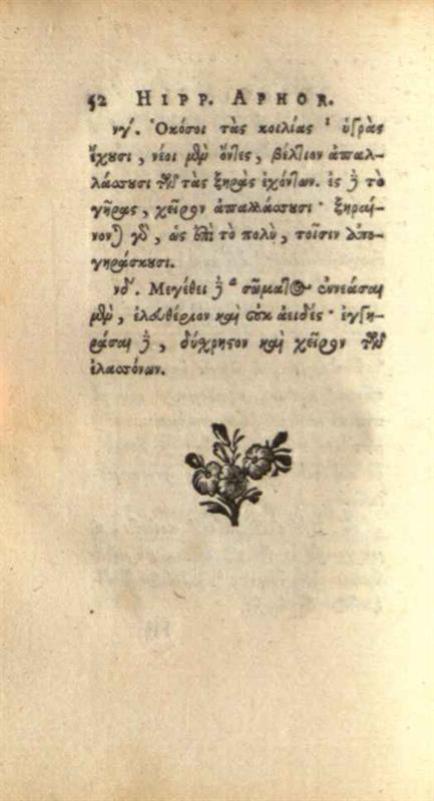 52 HIPP. APHOR.
νγ′. Ὁκόσοι τὰς κοιλίας ¹ ὑγρὰς
ἔχουσι, νέοι μὲν ὄντες, βέλτιον ἀπαλ-
λάσσουσι τῶν τὰς ξηρὰς ἐχόντων. ἐς δὲ τὸ
γῆρας, χεῖρον ἀπαλλάσσουσι· ξηραί-
νονται γὰρ, ὡς ἐπὶ τὸ πολὺ, τοῖσιν ἀπο-
γηράσκουσι.
νδ′. Μεγέθει δὲ ² σώματος ἐννεάσαι
μὲν, ἐλευθέριον καὶ οὐκ ἀειδές· ἐγγη-
ράσαι δὲ, δύχρηστον καὶ χεῖρον τῶν
ἐλασσόνων.